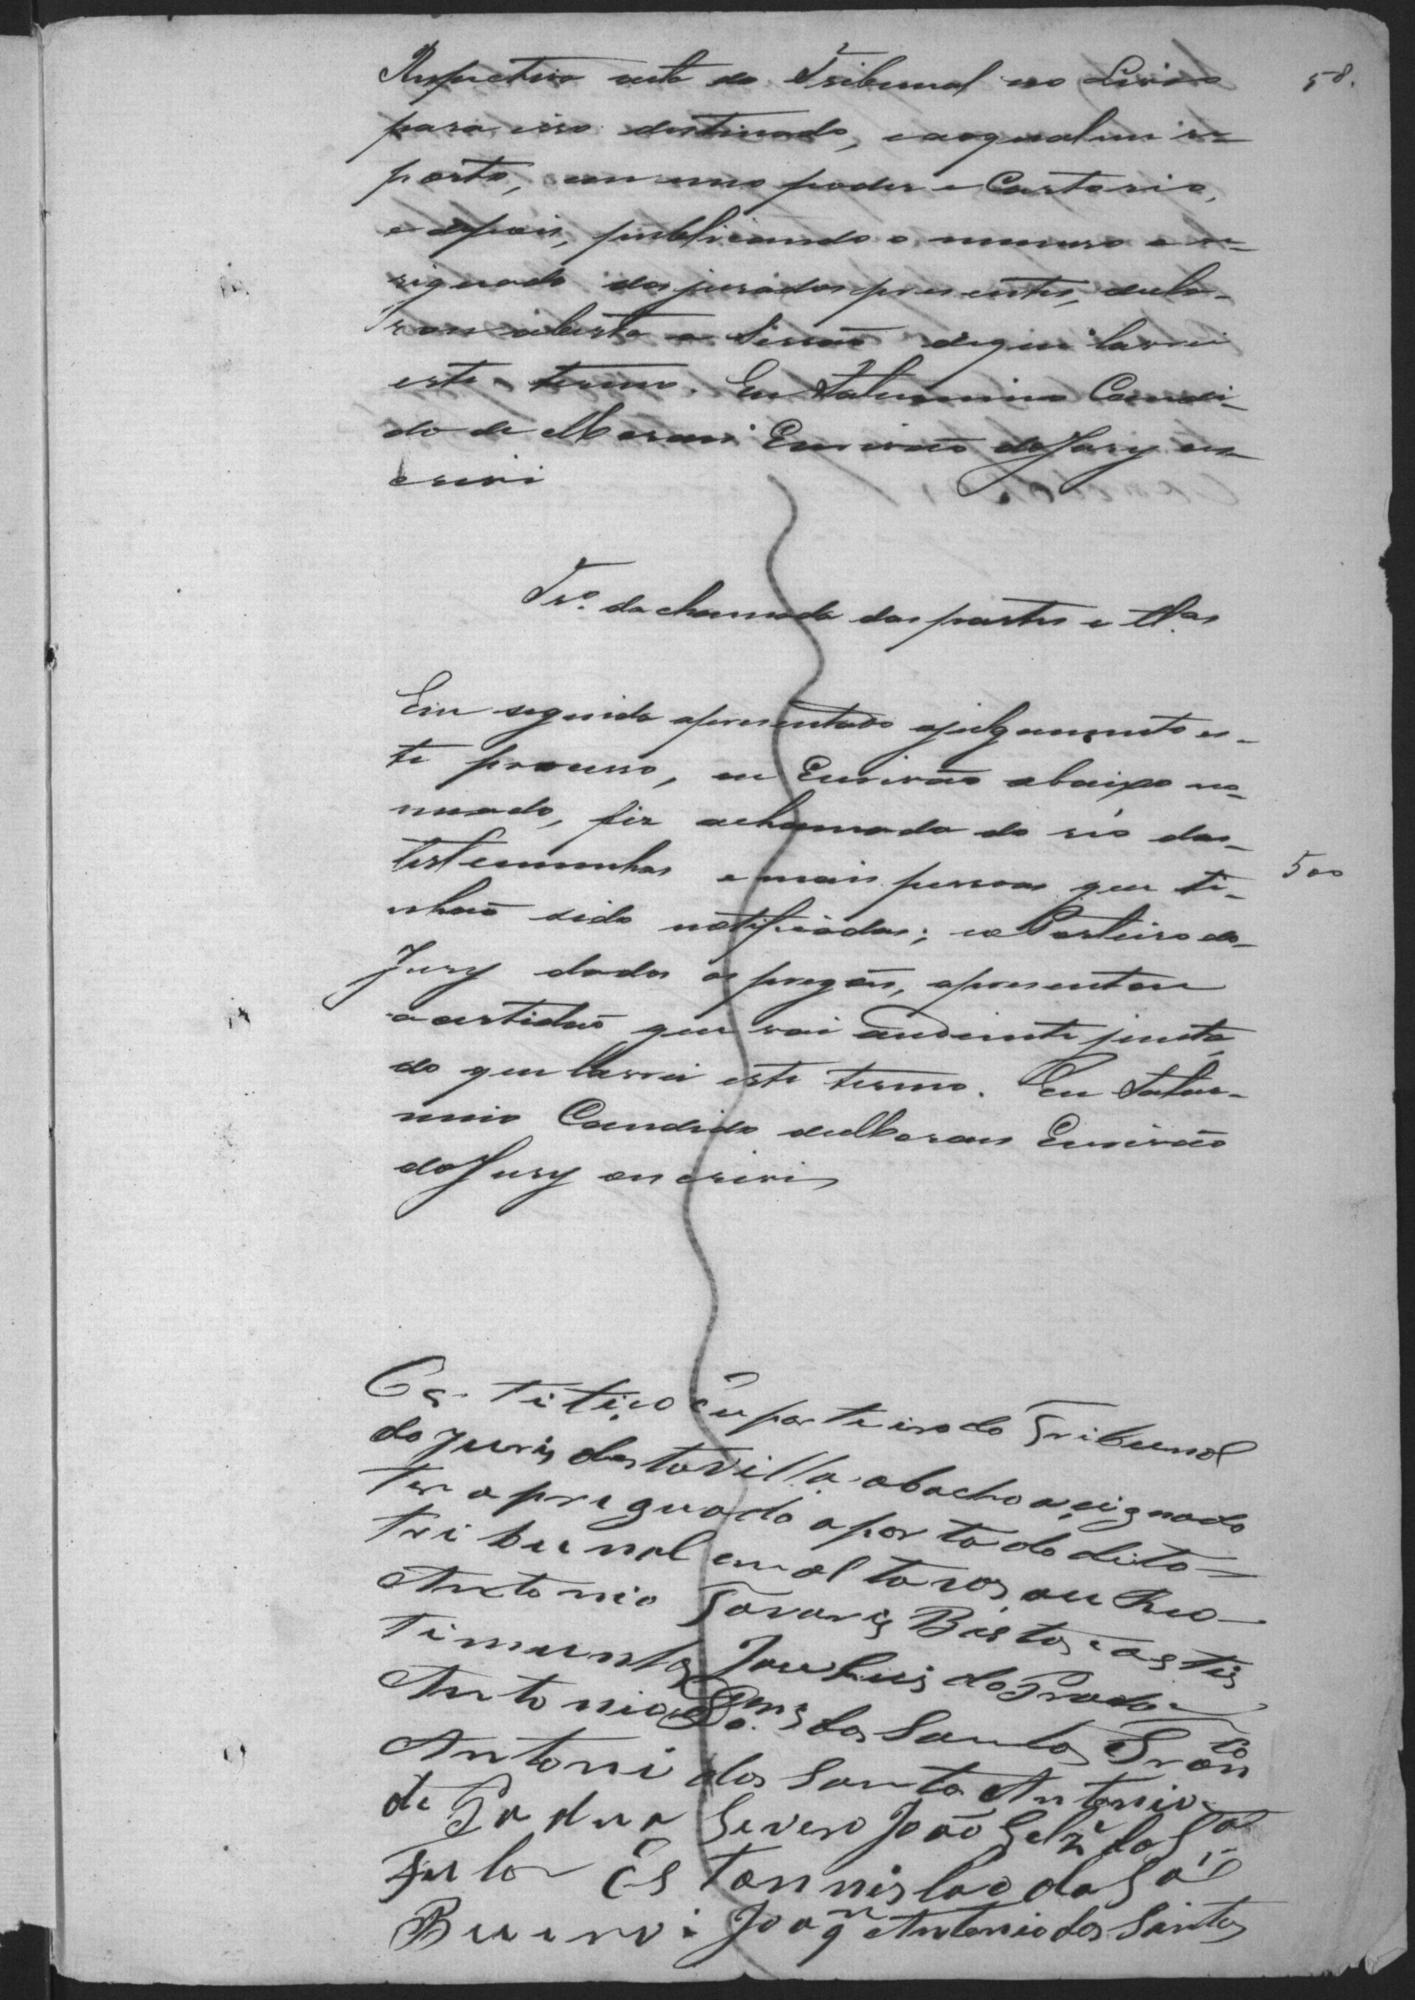 58.
Respectiva acta do Tribunal no Livro
para isso destinado, e ao qual me re-
porto, em meu poder e Cartorio,
e depois, publicando o numero e
dos jurados presentes, decla-
rou aberta a Sessão de que lavrei
este termo. Eu Saturnino Candi-
do de Moraes Escrivão do Jury es-
crevi
Tr.o da chamada das partes e tt.as
Em seguida apresentado a julgamento es-
te processo, eu Escrivão abaixo no-
meado, fiz a chamada do réo das
testemunhas e mais pessoas que ti-
500
nhaõ sido notificadas; e o Porteiro do
Jury dados os pregões, apresentou
a certidaõ que vai adiante junta,
do que lavrei este termo. Eu Satur-
nino Candido de Moraes Escrivão
do Jury escrevi
Certifico Eu porteiro do Tribunal
do Juri desta Villa abacho acignado
ter apreguado a porta do dito
tribunal em alta vos, au Reo
Antonio Tavares Bastos e as tes
timunhas Jose Luis do Prado
Antonio dos Santos
Antoni dos Santos Antonio
de Padua Severo João da S.a
Estannislao da S.a
Bueno Joaq.m Antonio dos Santos